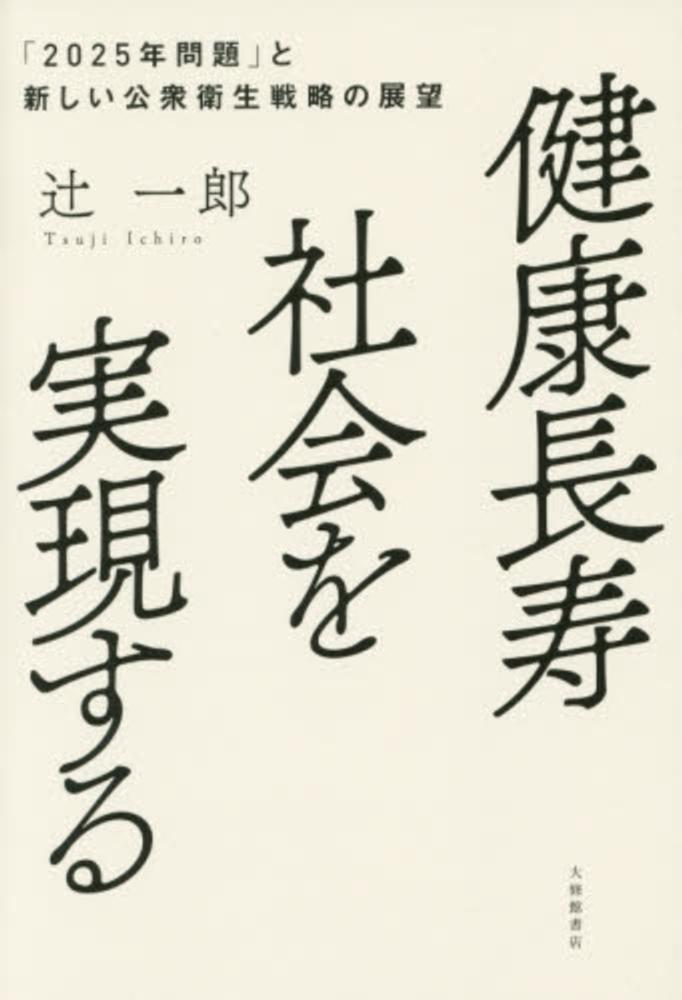 「2025年問題」と
新しい公衆衛生戦略の展望
辻 一郎
Tsuji Ichiro
健康長寿
社会を
実現する
大修館書店